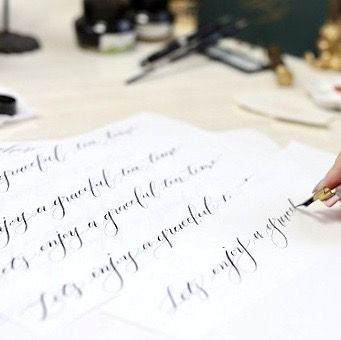 graceful tea time
enjoy a graceful tea time
Lets enjoy a graceful tea time
Lets enjoy a graceful
Lets enjoy a grac